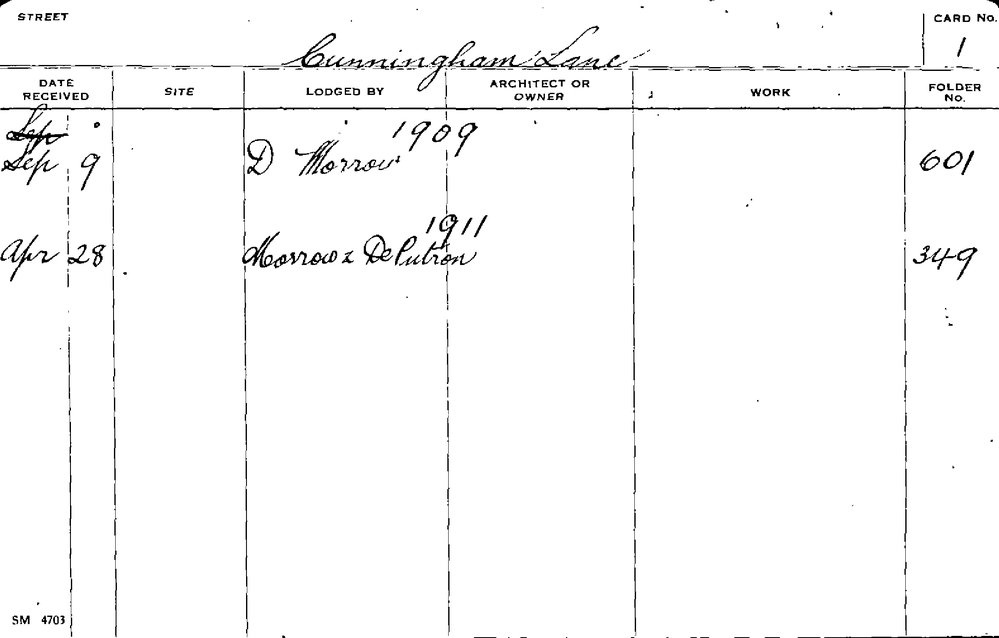 STREET
CARD No.
Cunningham Lane
1
DATE RECEIVED SITE LODGED BY ARCHITECT OR OWNER WORK FOLDER No.
1909
Sep
Sep 9 D Morrow 601
1911
Apr 28 Morrow & De Putron 349
SM 4703